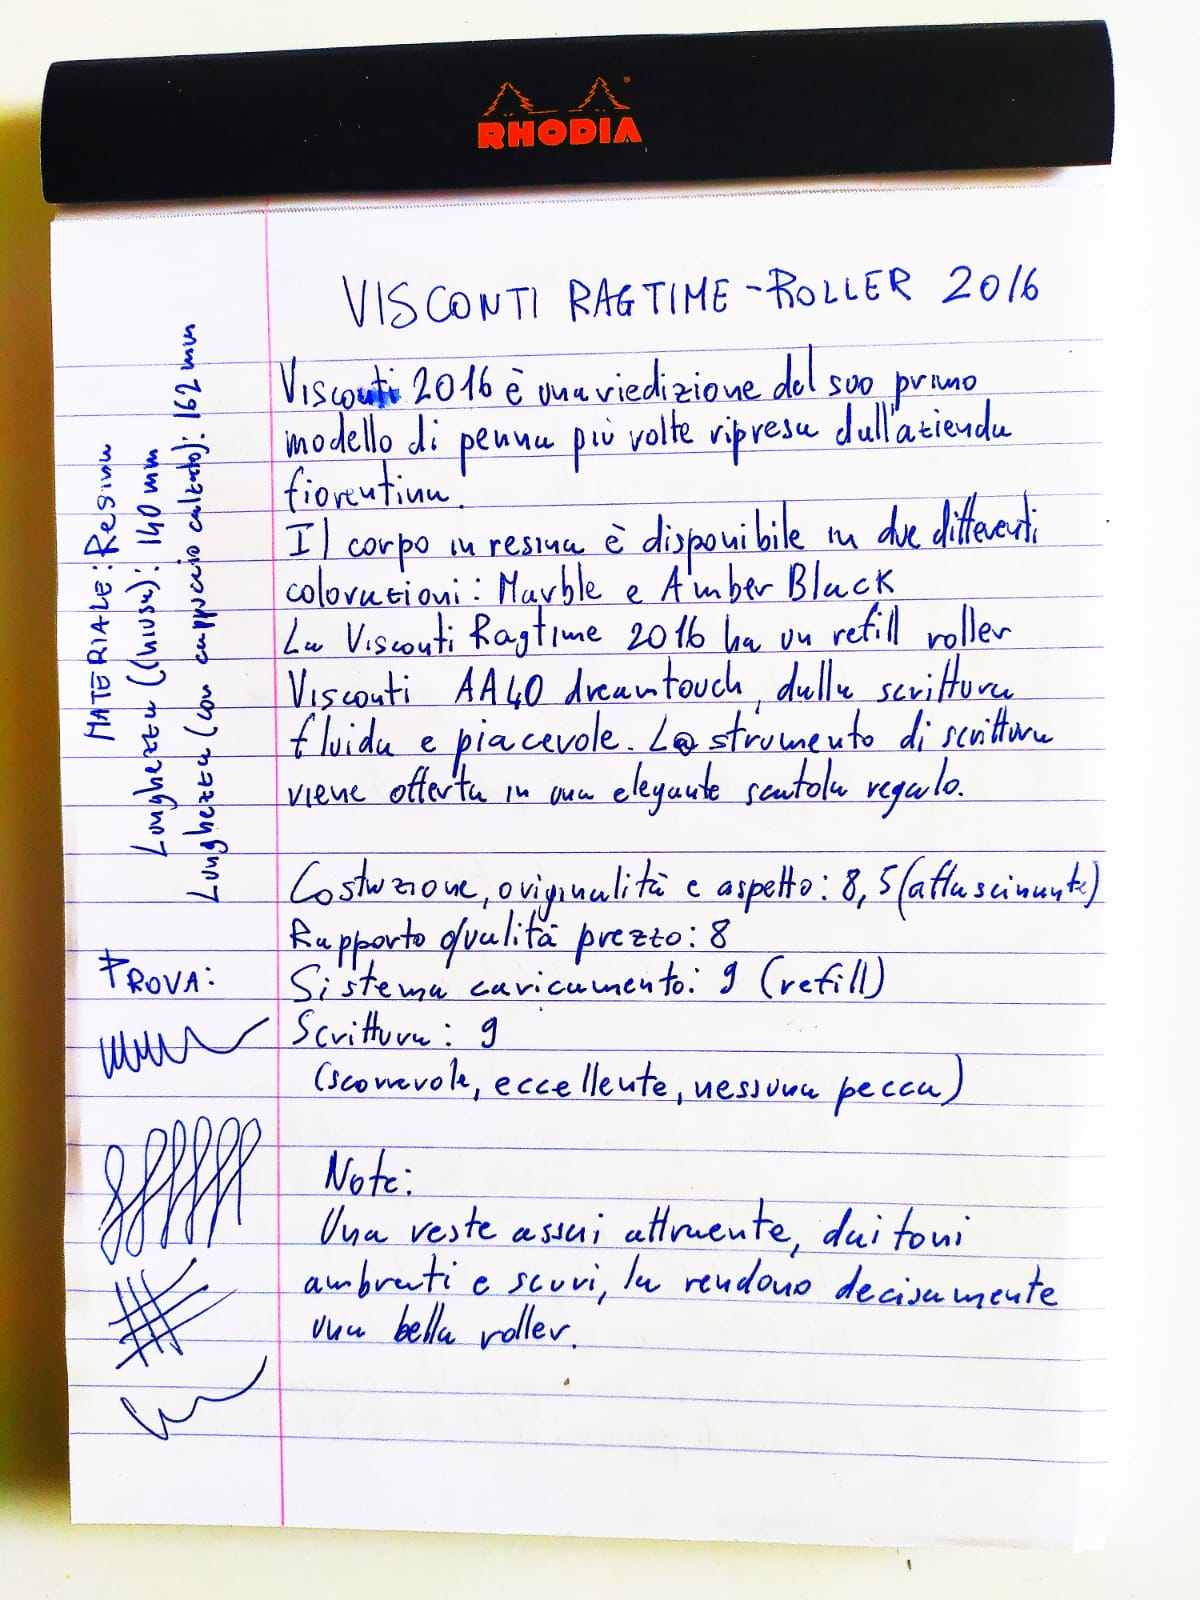 RHODIA
VISCONTI RAGTIME - ROLLER 2016
Visconti 2016 è una riedizione del suo primo
modello di penna più volte ripresa dall'azienda
fiorentina.
Il corpo in resina è disponibile in due differenti
colorazioni: Marble e Amber Black
La Visconti Ragtime 2016 ha un refill roller
Visconti AA40 dreamtouch, dalla scrittura
fluida e piacevole. Lo strumento di scrittura
viene offerta in una elegante scatola regalo.
Costruzione, originalità e aspetto: 8,5 (affascinante)
Rapporto qualità prezzo: 8
Sistema caricamento: 9 (refill)
Scrittura: 9
(scorrevole, eccellente, nessuna pecca)
Note:
Una veste assai attraente, dai toni
ambrati e scuri, la rendono decisamente
una bella roller.
MATERIALE: Resina
Lunghezza (chiusa): 140 mm
Lunghezza (con cappuccio calzato): 162 mm
PROVA: